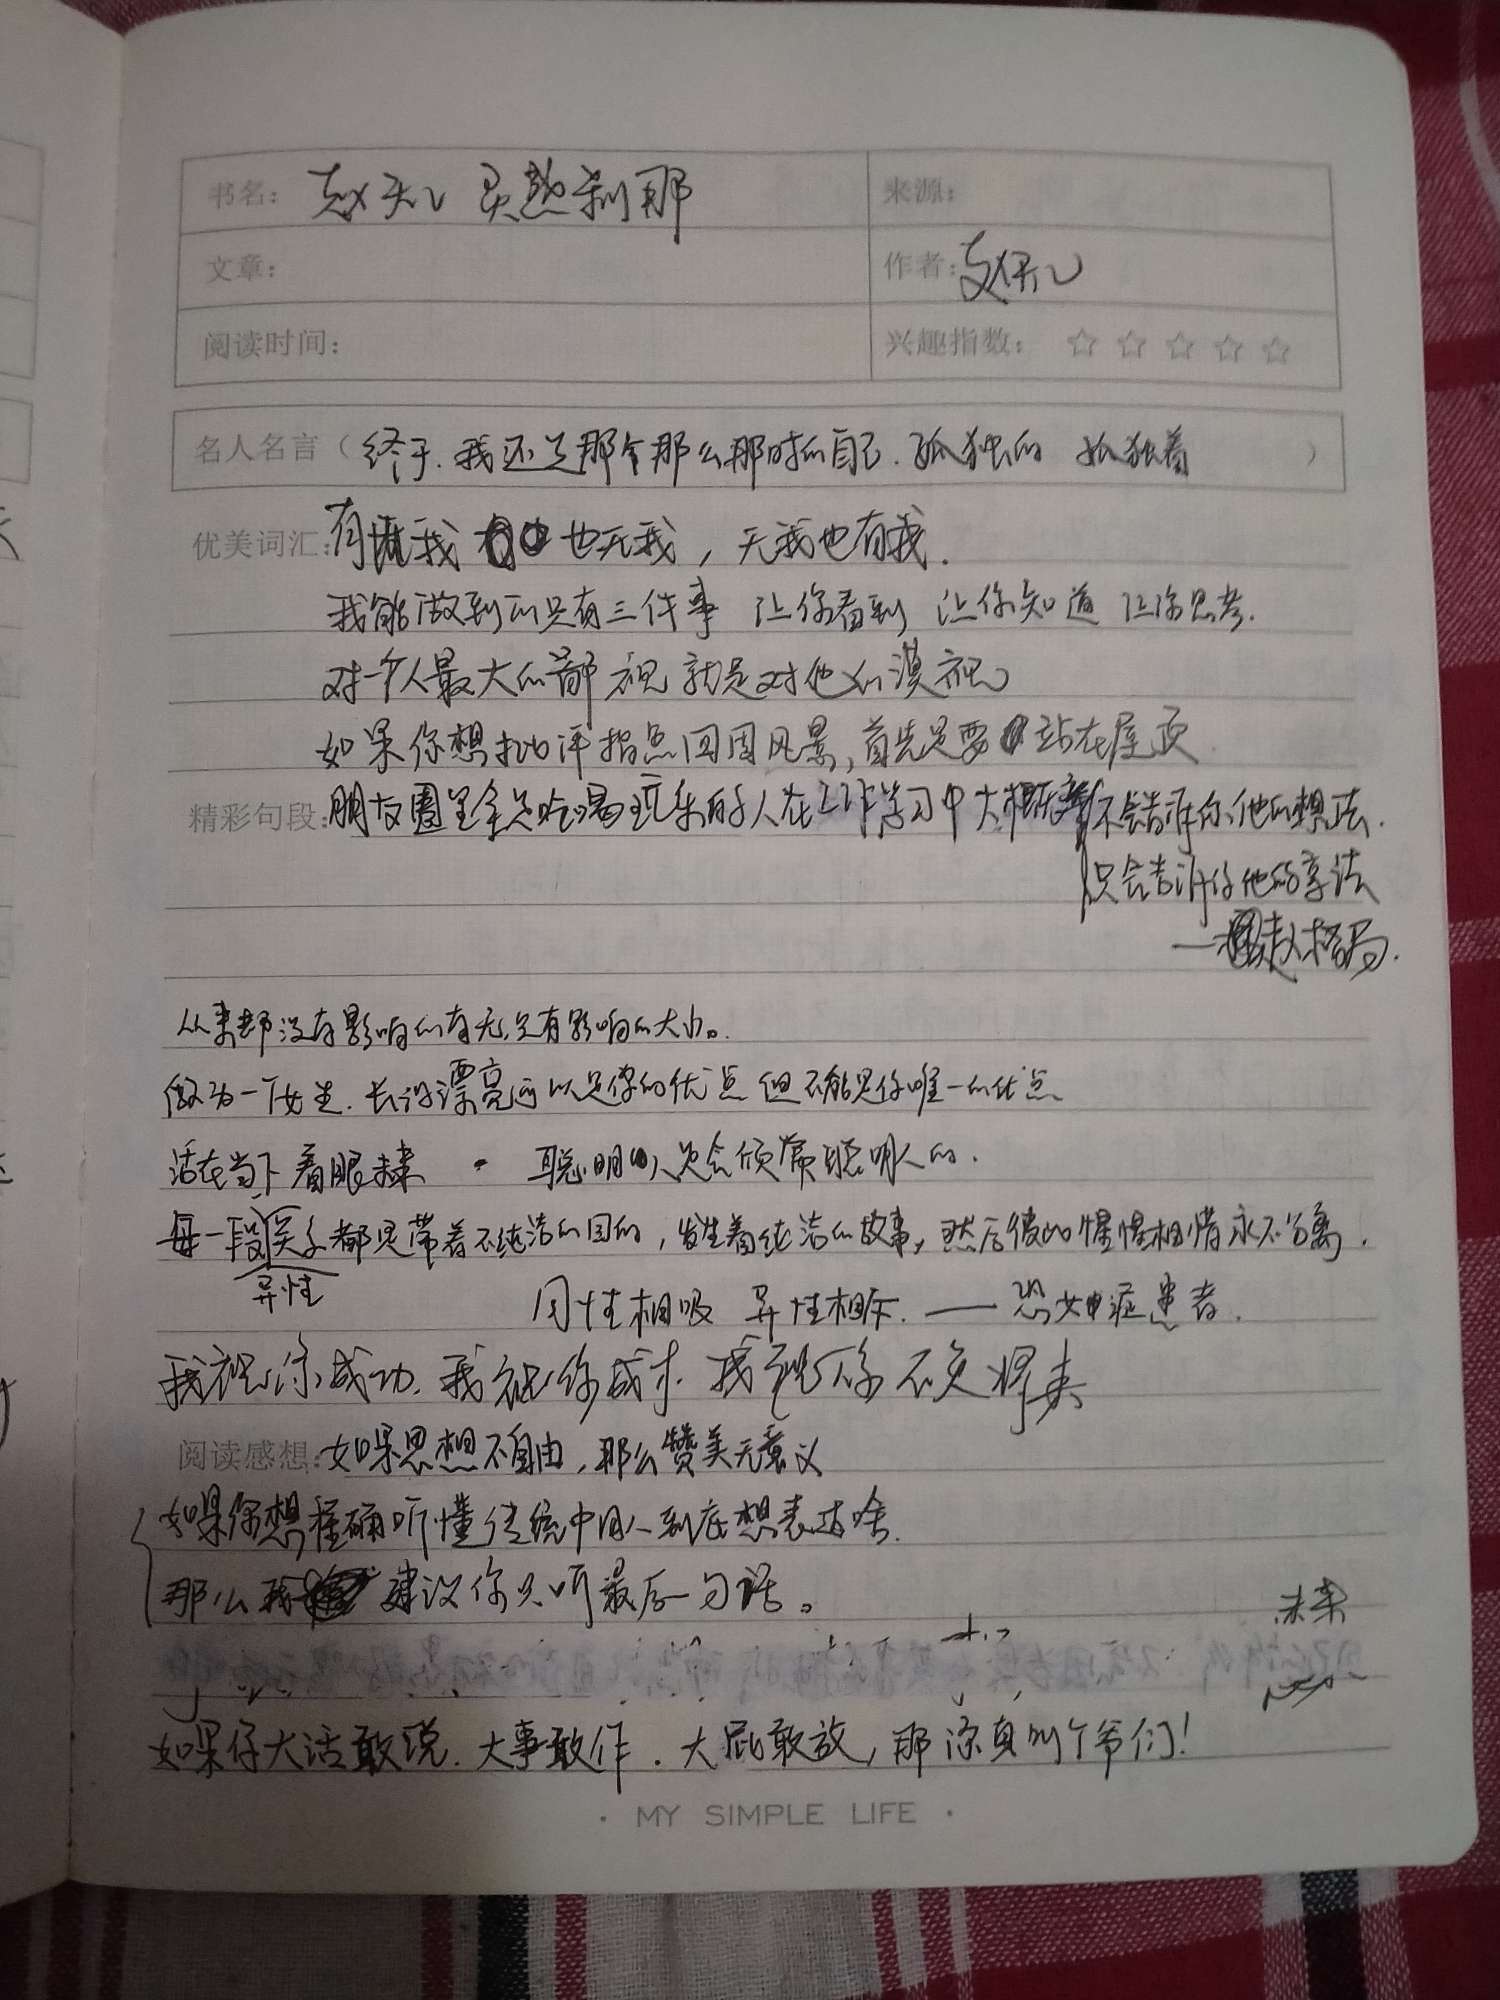 书名: 灵感刹那
来源:
文章:
作者:
阅读时间:
兴趣指数: ☆ ☆ ☆ ☆ ☆
名人名言 ( 终于.我还是那个那么那时的自己.孤独的 孤独着 )
优美词汇: 有我 也无我, 无我也有我.
我能做到的只有三件事 让你看到 让你知道 让你思考.
对一个人最大的鄙视就是对他的漠视
如果你想批评指点四周风景,首先是要站在屋顶.
精彩句段: 朋友圈里全是吃喝玩乐的人在工作学习中大概率不会告诉你他的想法.
只会告诉你他的享法
从来都没有影响的有无,只有影响的大小。
做为一个女生.长得漂亮可以是你的优点 但不能是你唯一的优点
活在当下 着眼未来 · 聪明人是会欣赏聪明人的.
每一段关系都是带着不纯洁的目的,发生着纯洁的故事,然后彼此惺惺相惜永不分离.
异性
同性相吸 异性相斥. —— 恐女症患者.
我祝你成功.我祝你成才.我祝你不负将来
阅读感想: 如果思想不自由,那么赞美无意义
如果你想准确听懂传统中国人到底想表达啥.
那么我建议你只听最后一句话。
未来
如果你大话敢说.大事敢作.大屁敢放,那你真叫个爷们!
· MY SIMPLE LIFE ·